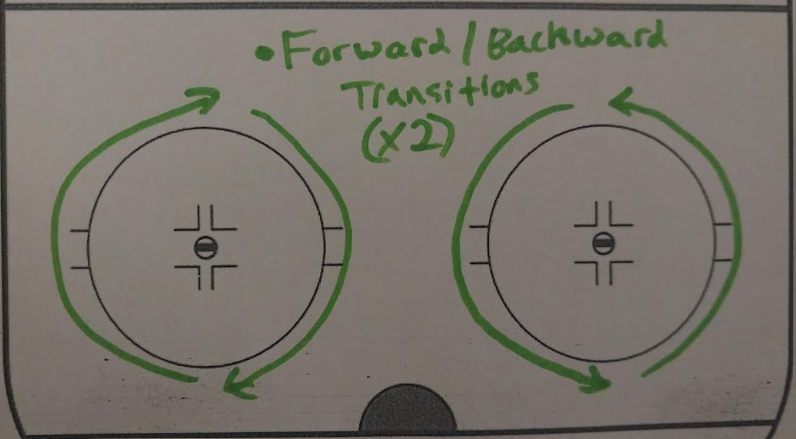 • Forward / Backward
Transitions
(x2)